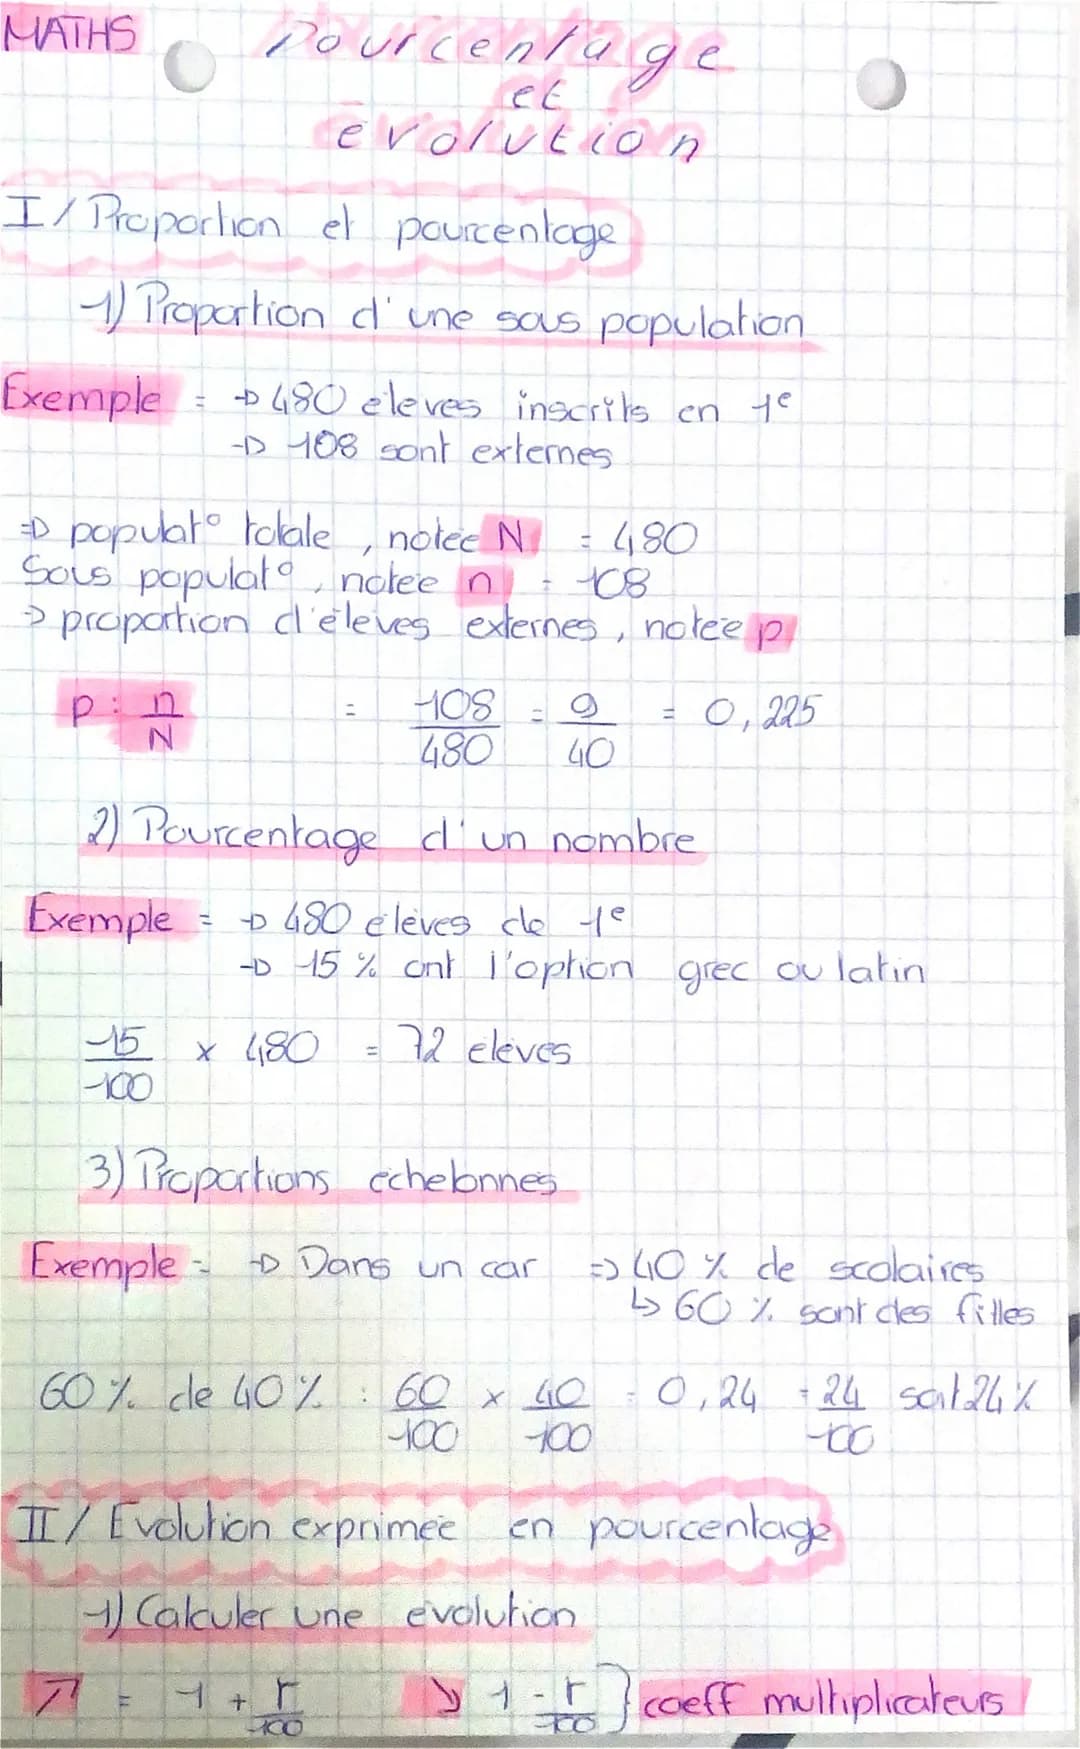 MATHS
Pourcentage
et
évolution
I/ Proportion et pourcentage
1) Proportion d'une sous population
Exemple = → 480 élèves inscrits en 1e
→ 108 sont externes
⇒ populat° totale, notée N = 480
Sous populat°, notée n = 108
→ proportion d'élèves externes, notée p
p = n/N = 108/480 = 9/40 = 0,225
2) Pourcentage d'un nombre
Exemple = → 480 élèves de 1e
→ 15 % ont l'option grec ou latin
15/100 x 480 = 72 élèves
3) Proportions échelonnées
Exemple = → Dans un car ⇒ 40 % de scolaires
↳ 60 % sont des filles
60 % de 40 % : 60/100 x 40/100 = 0,24 = 24/100 soit 24 %
II/ Evolution exprimée en pourcentage
1) Calculer une évolution
↗ = 1 + r/100 ↘ 1 - r/100 } coeff multiplicateurs